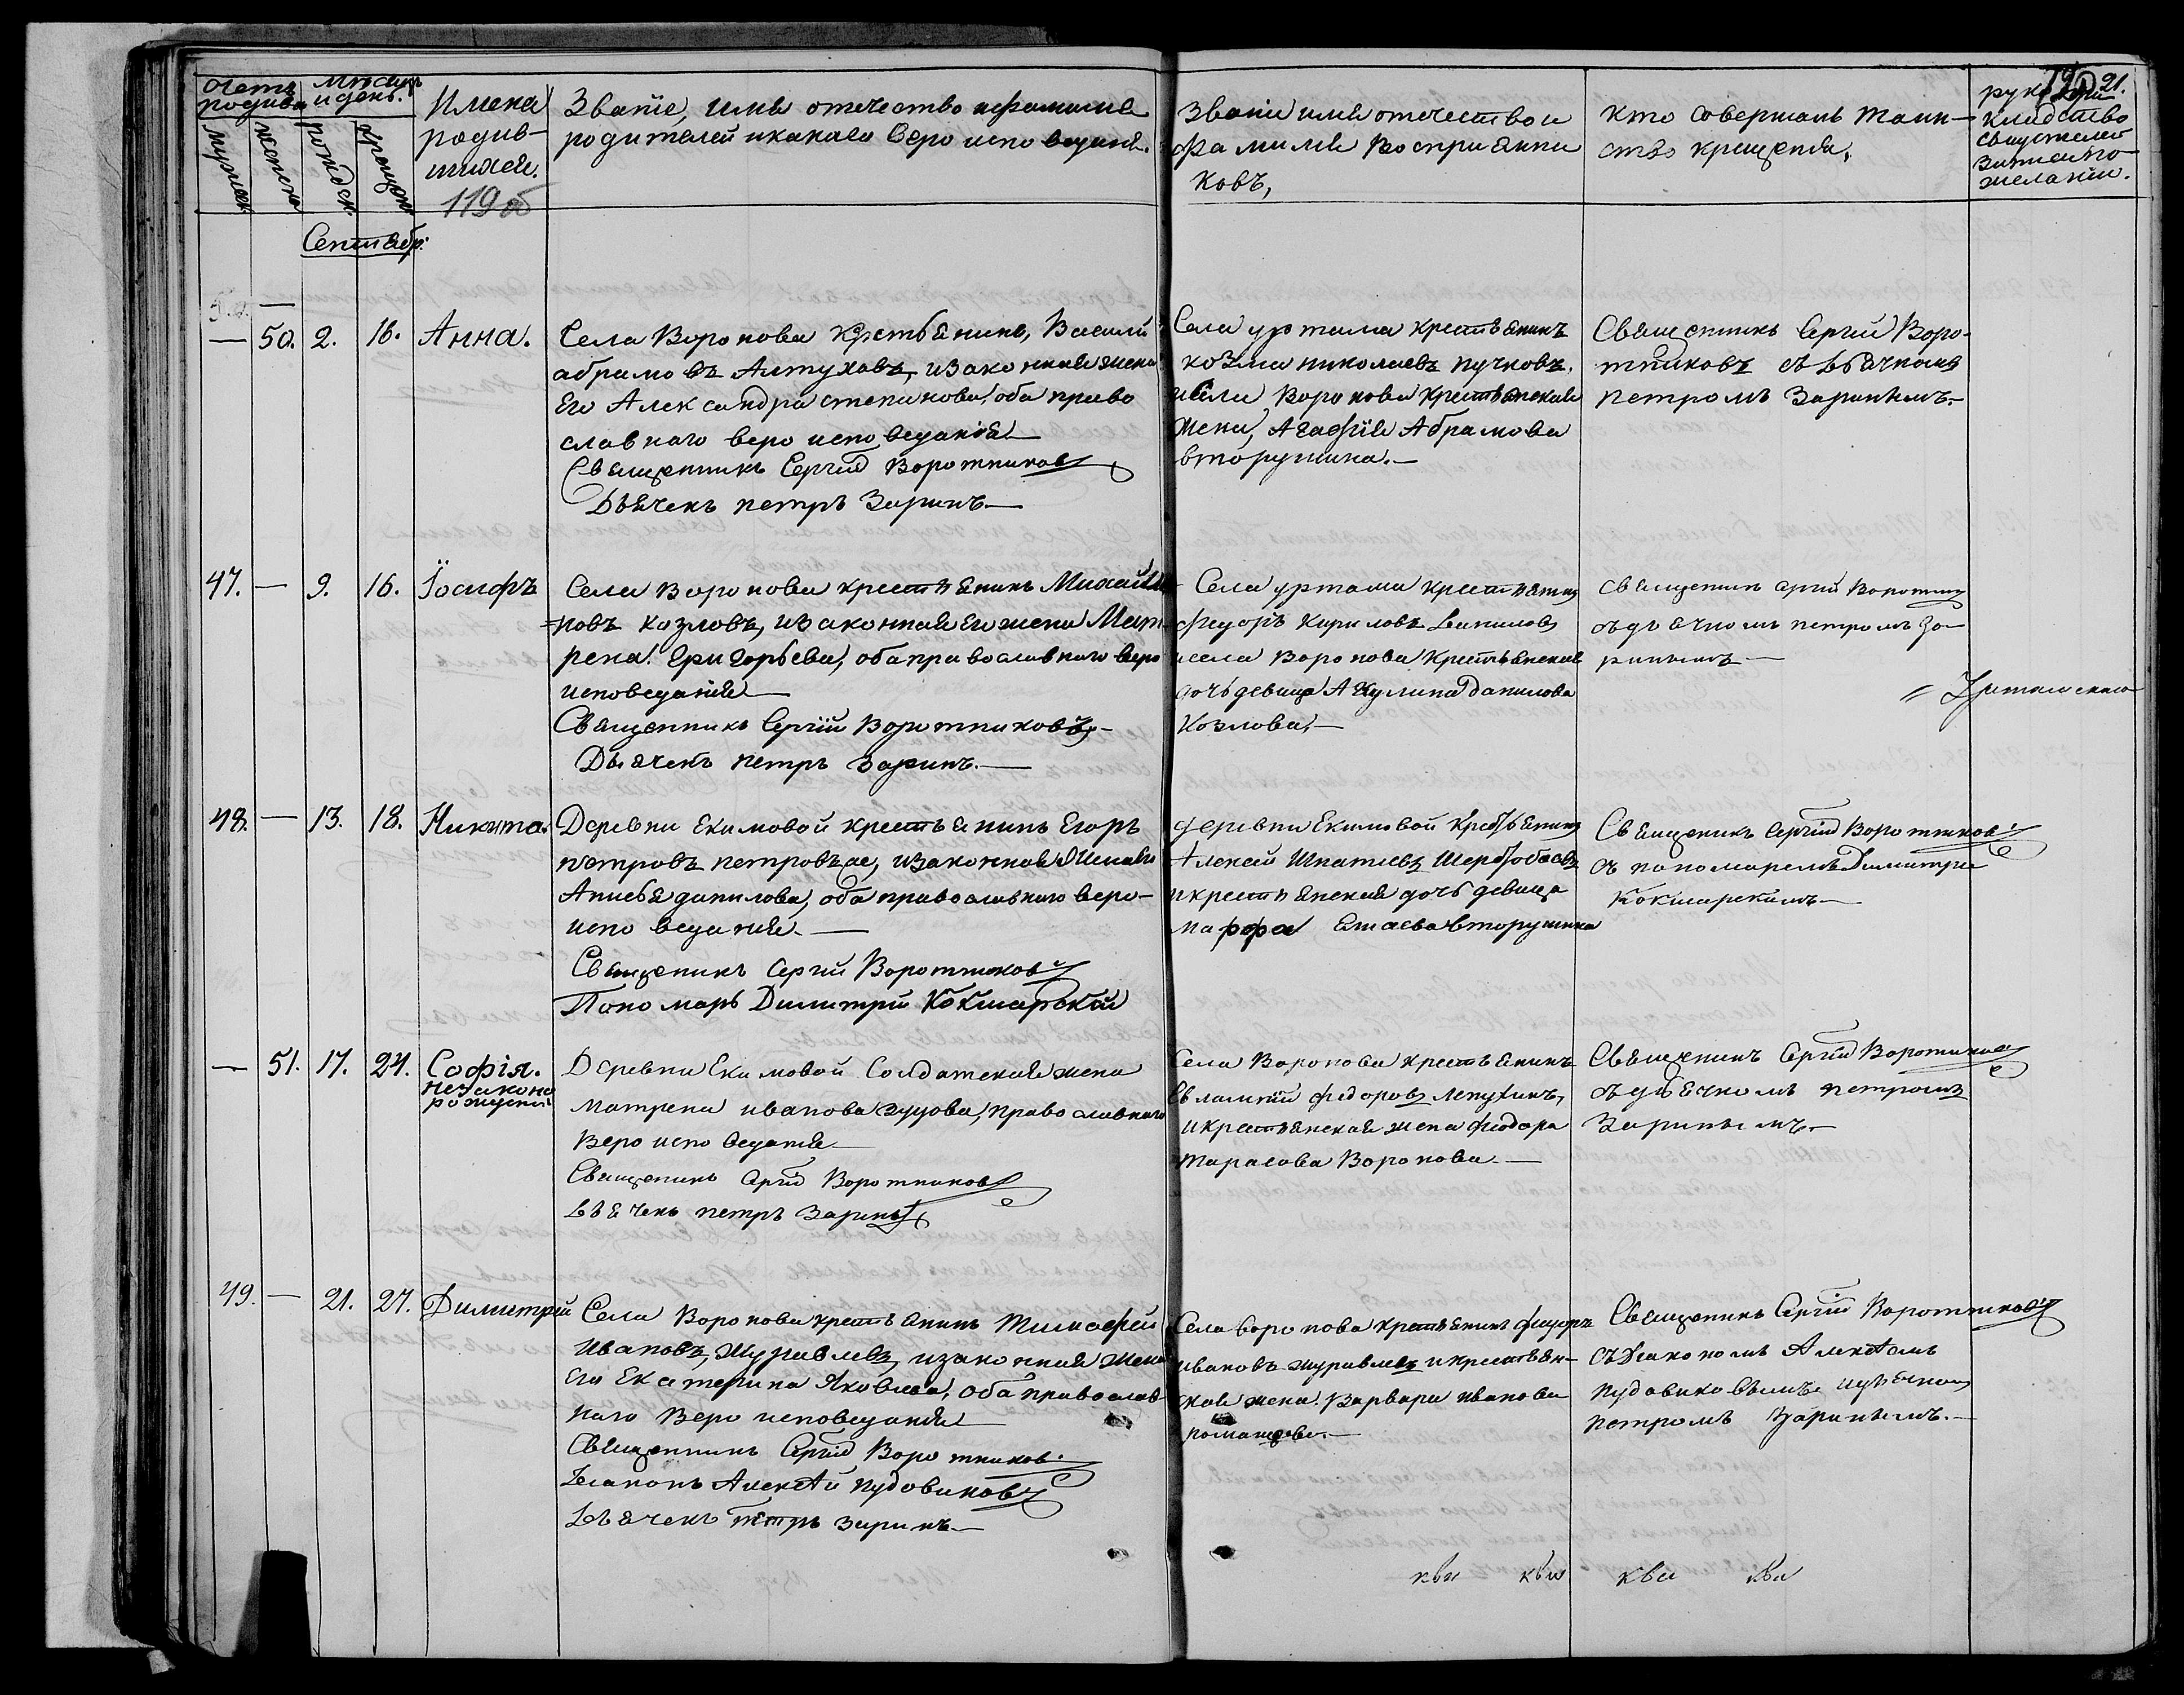 Счетъ родивш
Мѣсяцъ и день.
мужеск
женска
рожден.
крещен.
Имена
родив-
шихся.
119 об
Званіе, имя отечество и фамилия
родителей и какаго веро исповеданія.
Званіе имя отечество и
фамилия Восприемни
ковъ,
Кто совершалъ таин-
ство крещенія.
21.
рукопри
кладство
свидетелей
записи по
желанію.
Сентябр:
— 50. 2. 16. Анна.
Села Воронова Крстьянинъ, Василй
абрамовъ Алтуховъ, изаконная жена
Его Александра степанова, оба право
славнаго веро исповеданія
Священникъ Сергій Воротниковъ
Дьячекъ петръ Заринъ—
Села уртама крестьянинъ
козма николаевъ пучковъ,
исела Воронова Крестьянская
жена, Агафія Абрамова
вторушина.—
Священникъ Сергій Воро-
тниковъ съ дьячкомъ
петромъ Заринымъ.—
47. — 9. 16. Іосифъ
Села Воронова крестьянинъ Михайла
повъ козловъ, изаконная Его жена Мат-
рена Григорьева, оба православнаго веро
исповеданія
Священникъ Сергій Воротниковъ—
Дьячекъ петръ Заринъ.—
Села уртама крестьянинъ
федоръ Кириловъ Вашиловъ
исела Воронова Крестьянская
дочь девица Акулина данилова
Козлова,—
Священникъ сергій Воротник
съ дьячкомъ петромъ За-
ринымъ—
48. — 13. 18. Никита.
Деревни Екимовой крестьянинъ Егоръ
петровъ петровъ же, изаконная Жена
Анисья данилова, оба православнаго веро-
исповеданія.—
Священикъ Сергій Воротниковъ
Пономарь Димитрій Кокшарскій
деревни Екимовой Крестьянинъ
Алексей Игнатиевъ Щербобаевъ
икрестьянская дочь девица
марфа Елисева вторушина
Священикъ Сергій Воротниковъ
съ пономаремъ Димитрие
Кокшарскимъ—
— 51. 17. 24. Софія.
незаконо
рожденая
Деревни Екимовой Солдатская жена
матрена иванова зудова, православнаго
Веро исповеданія
Священикъ Сергій Воротниковъ
дьячекъ петръ Заринъ
Села Воронова крестьянинъ
Евлампій федоровъ лепухинъ,
икрестьянская жена феодора
тарасова Воронова.—
Священикъ Сергій Воротниковъ
съ дьячкомъ петромъ
Заринымъ.—
49. — 21. 27. Димитрій
Села Воронова крестьянинъ Тимофей
ивановъ, журавлевъ, изаконная жена
его Екатерина Яковлева, оба православ
наго Веро исповеданія
Священникъ Сергій Воротниковъ
Дьяконъ Алексѣй пудовиковъ
дьячекъ петръ заринъ—
Села воронова крестьянинъ федоръ
ивановъ журавлевъ икрестьян-
ская жена Варвара иванова
ромащева.—
Священикъ Сергій Воротниковъ
съ Диакономъ Алексѣемъ
пудовиковымъ идьячкомъ
петромъ Заринымъ.—
кви кви кви кви